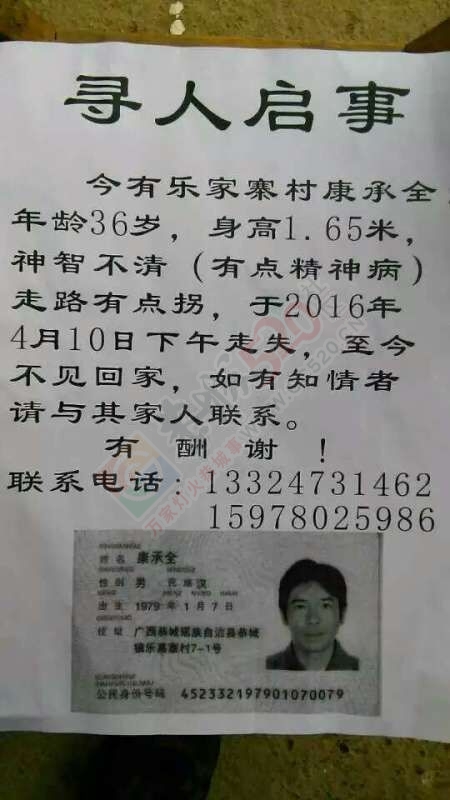 寻人启事
今有乐家寨村康承全,
年龄36岁，身高1.65米，
神智不清（有点精神病）
走路有点拐，于2016年
4月10日下午走失，至今
不见回家，如有知情者
请与其家人联系。
有 酬 谢 !
联系电话:13324731462
15978025986
姓名 康承全
性别 男 民族 汉
出生 1979 年 1 月 7 日
住址 广西恭城瑶族自治县恭城
镇乐嘉寨村7-1号
公民身份号码 452332197901070079
万家灯火茶城事